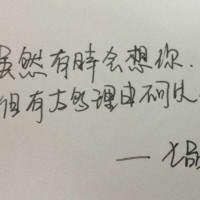 虽然有时会想你.
但有太多理由不可以